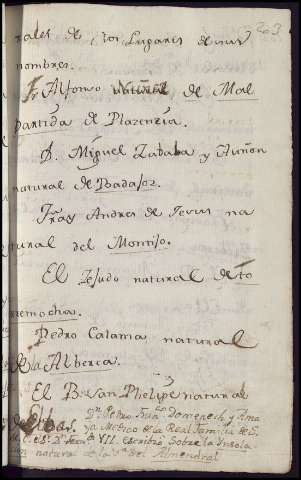 203
rales de los Lugares de sus
nombres.
Fr Alfonso natural de Mal
partida de Plazenzia.
D. Miguel Zababa y Auñon
natural de Badajoz.
Fray Andres de Jesus na
tural del Montijo.
El Pssudo natural de to
rremocha.
Pedro Calama natural
de la Alberca.
El B. San Phelipe natural
Dn. Pedro Domenech y Ama
ya Medico de la Real familia de S.
VII. escribió sobre la
natural de la Va. del Almendral